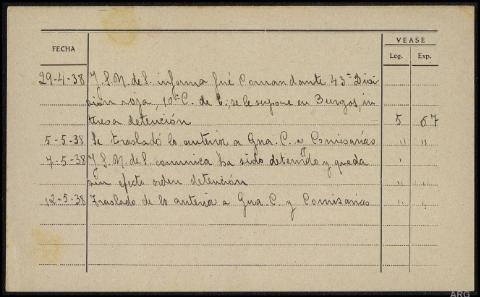 FECHA
VEASE
Leg. Exp.
29-4-38 J.S.N. de S. informa fué Comandante 43ª Divi
sión roja, 10º C. de E; se le supone en Burgos, in
tresa detención 5 67
5-5-38 Se trasladó lo anterior a Gna. C. y Comisarías " "
7-5-38 J.S.N. de S. comunica ha sido detenido y queda "
sin efecto orden detención
12-5-38 Traslado de lo anterior a Gna. C. y Comisarías " "
ARG